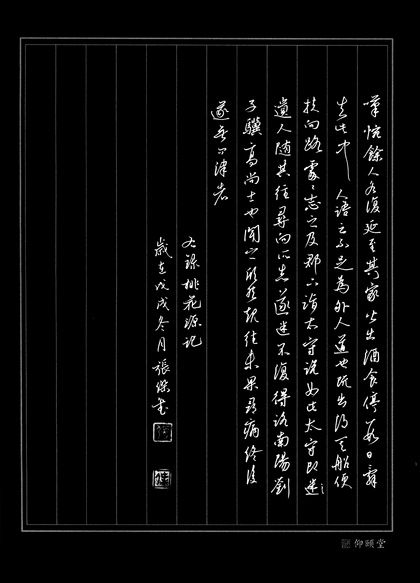 嘆惋餘人各復延至其家皆出酒食停數日辭
去此中人語云不足為外人道也既出得其船便
扶向路處〻志之及郡下詣太守說如此太守即迷〻
遣人隨其往尋向所志遂迷不復得路南陽劉
子驥高尚士也聞之欣然規往未果尋病終後
遂無問津者
右錄桃花源記
歲在戊戌冬月張傑書
仰頤堂